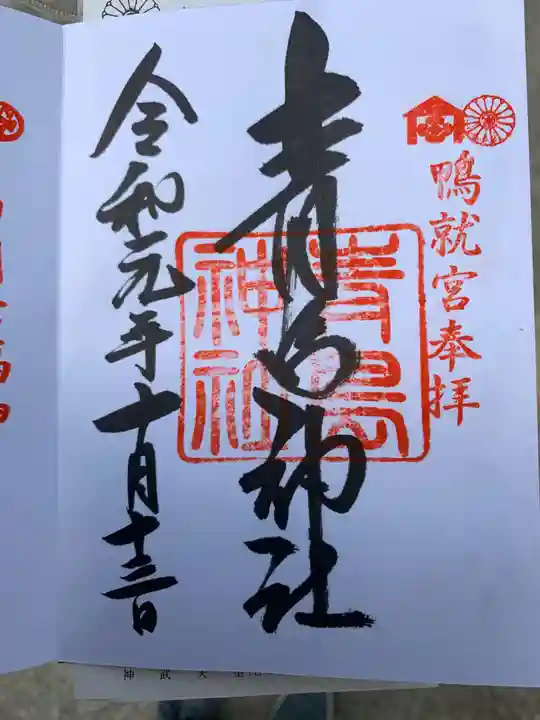 鴨就宮奉拝
青島神社
青島
神社
令和元年十月十三日
神武天皇